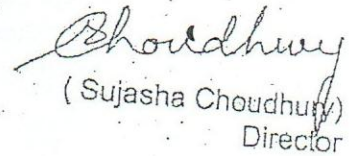 Choudhury
( Sujasha Choudhury)
Director